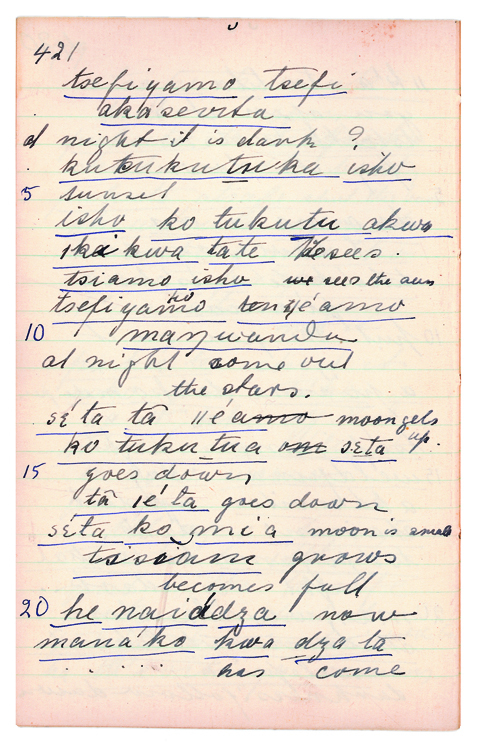 421
tsefiyamo tsefi
akasevita
at night it is dark ?
kutukutuka isho
5 sunset
isho ko tukutu akwa
ika kwa tate He sees.
tsiamo isho we sees the sun
tsefiyamo no
10
at night come out
the stars.
séta ta iiéamo moon gets up.
ko tukutua om seta
15 goes down
tā ié ta goes down
séta ko mi'a moon is small
grows
becomes full
20 he naiddza now
mana'ko kwa dza ta
has come